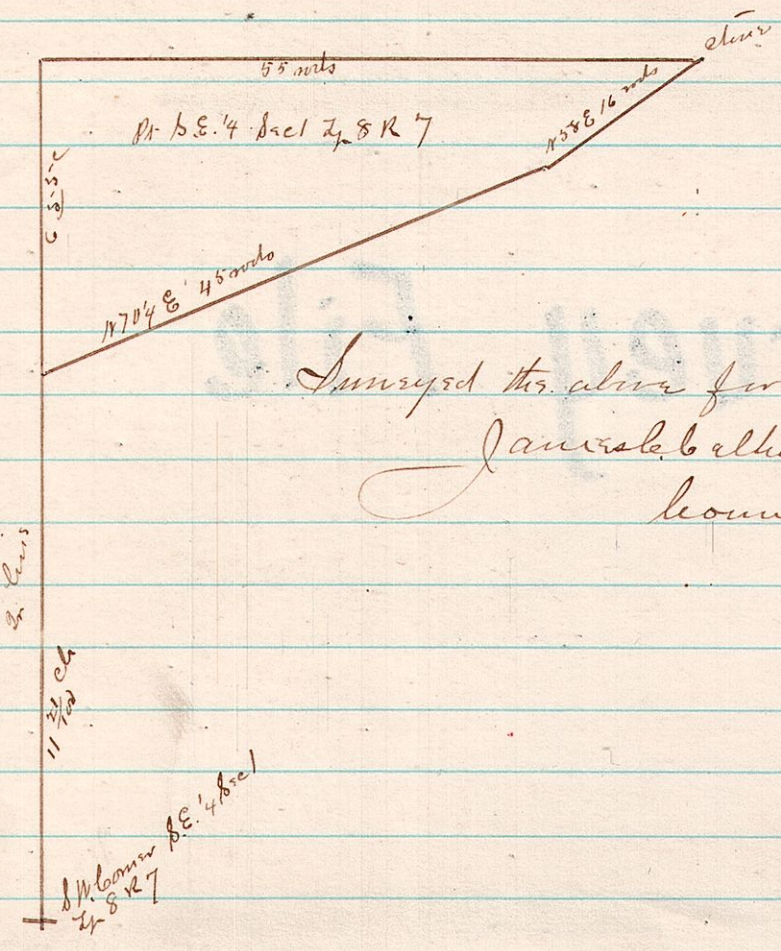 55 rods
Pt S.E. 1/4 Sec 1 Tp 8 R 7
N58E 16 rods
N70 1/4 E 45 rods
Surveyed the above for
James C. C
Coun
11 21/100 Ch
S.W. Corner S.E. 1/4 Sec 1
Tp 8 R 7